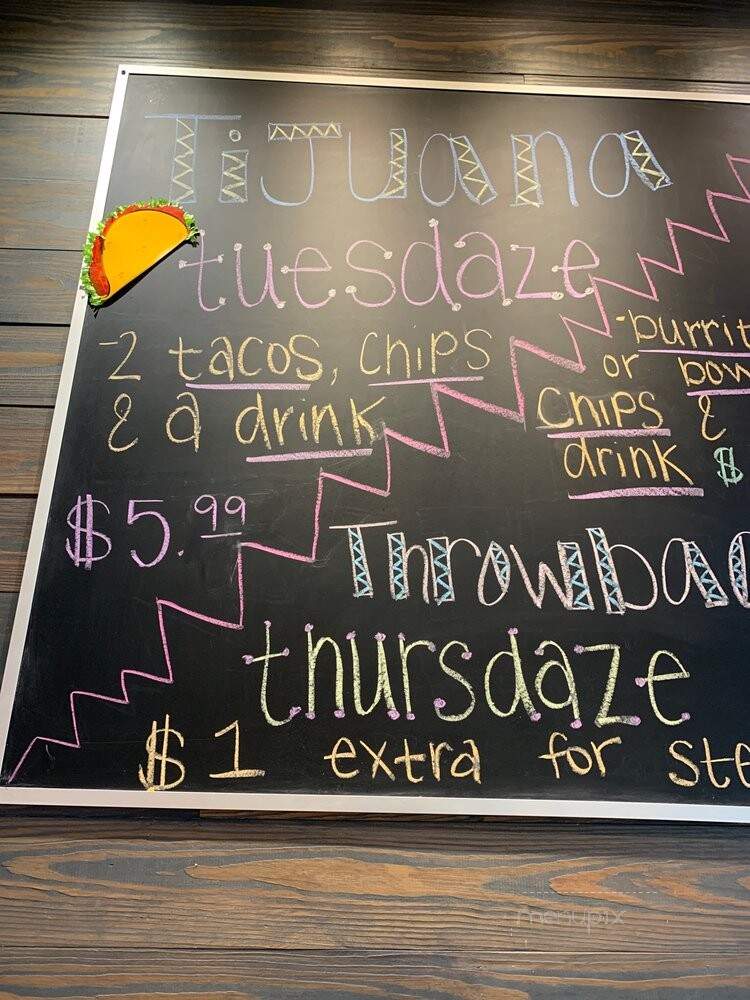 Tijuana
tuesdaze
-2 tacos, chips
& a drink
$5.99
-burrit
or bow
chips &
drink $
Throwbac
thursdaze
$1 extra for ste
menupix